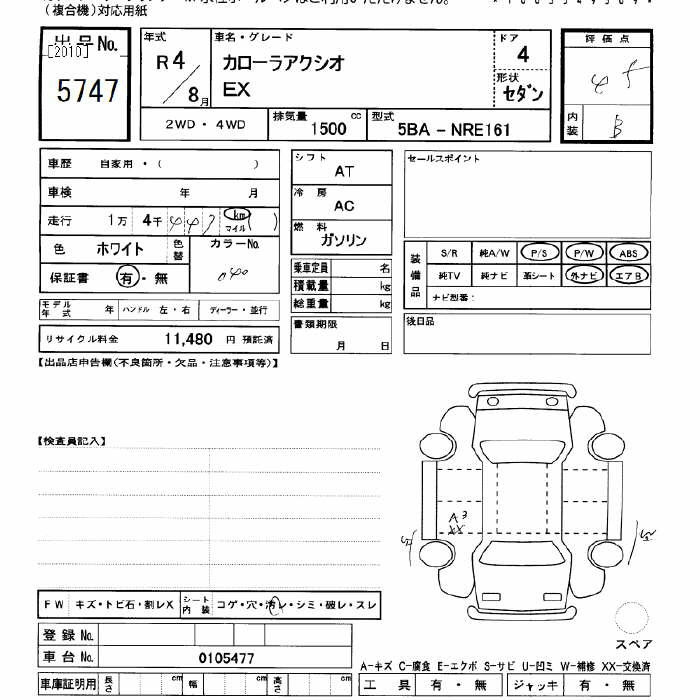 （複合機）対応用紙
出品No.
[2010]
5747
年式
R4／8月
車名・グレード
カローラアクシオ
EX
ドア
4
形状
セダン
評価点
内装
B
2WD・4WD
排気量
1500 cc
型式
5BA－NRE161
車歴 自家用・（ ）
車検 年 月
走行 1万 4千 km マイル ( )
色 ホワイト 色替 カラーNo.
040
保証書 有・無
モデル年式 年 ハンドル 左・右 ディーラー・並行
リサイクル料金 11,480 円 預託済
シフト
AT
冷房
AC
燃料
ガソリン
乗車定員 名
積載量 kg
総重量 kg
書類期限
月 日
セールスポイント
装備品
S/R 純A/W P/S P/W ABS
純TV 純ナビ 革シート 外ナビ エアB
ナビ型番：
後日品
【出品店申告欄(不良箇所・欠品・注意事項等)】
【検査員記入】
A3
XX
スペア
FW キズ・トビ石・割レX シート内装 コゲ・穴・汚レ・シミ・破レ・スレ
登録No.
車台No. 0105477
車庫証明用 長さ cm 幅 cm 高さ cm
A－キズ C－腐食 E－エクボ S－サビ U－凹ミ W－補修 XX－交換済
工具 有・無 ジャッキ 有・無